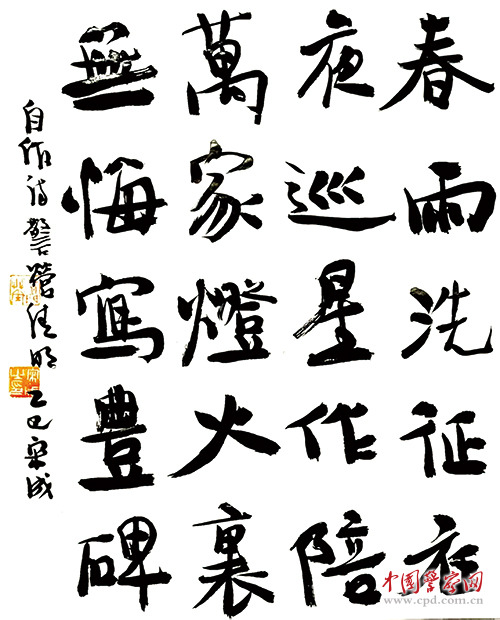 春雨洗征衣
夜巡星作陪
萬家燈火裏
無悔寫豐碑
自作诗警營清明乙巳宋成
中国警察网
www.cpd.com.cn